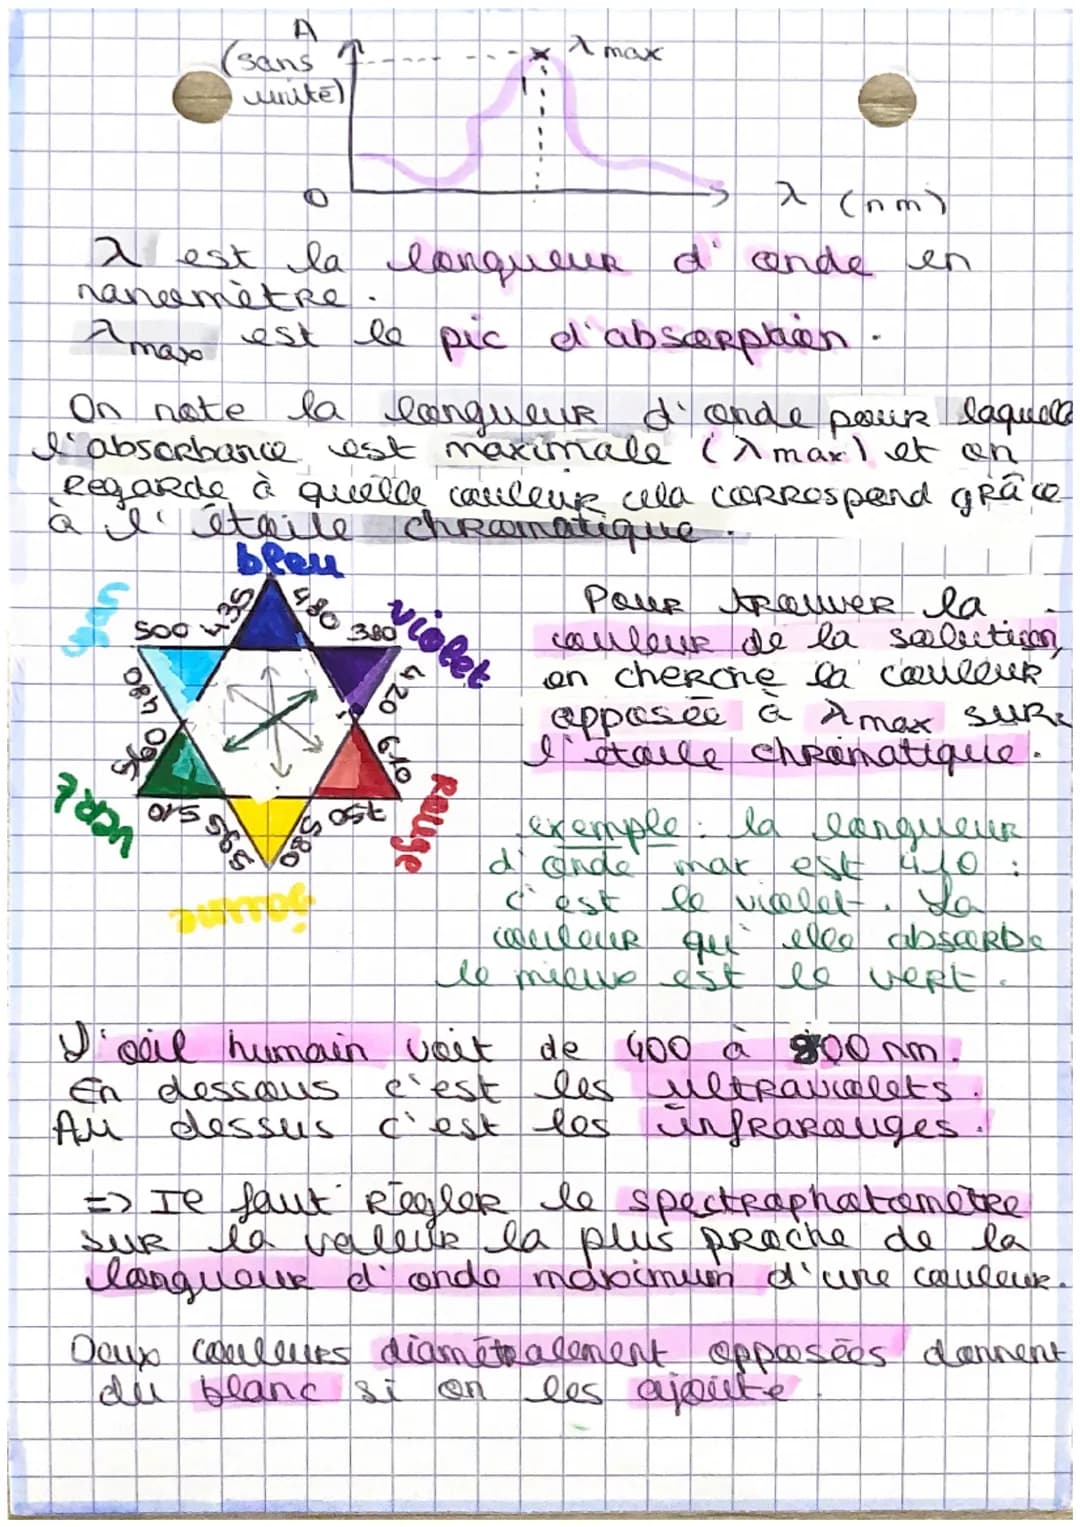 A
(sans
unité)
λ max
0
λ (nm)
λ est la longueur d'onde en
nanomètre.
λmax est le pic d'absorption.
On note la longueur d'onde pour laquelle
l'absorbance est maximale (λmax) et on
regarde à quelle couleur cela correspond grâce
à l'étoile chromatique.
bleu
violet
rouge
jaune
vert
435
480
380
420
610
750
580
595
510
560
480
500
Pour trouver la
couleur de la solution,
on cherche la couleur
opposée à λmax sur
l'étoile chromatique.
exemple : la longueur
d'onde max est 410 :
c'est le violet. La
couleur qu'elle absorbe
le mieux est le vert.
L'œil humain voit de 400 à 800 nm.
En dessous c'est les ultraviolets.
Au dessus c'est les infrarouges.
=> Il faut régler le spectrophotomètre
sur la valeur la plus proche de la
longueur d'onde maximum d'une couleur.
Deux couleurs diamétralement opposées donnent
du blanc si on les ajoute